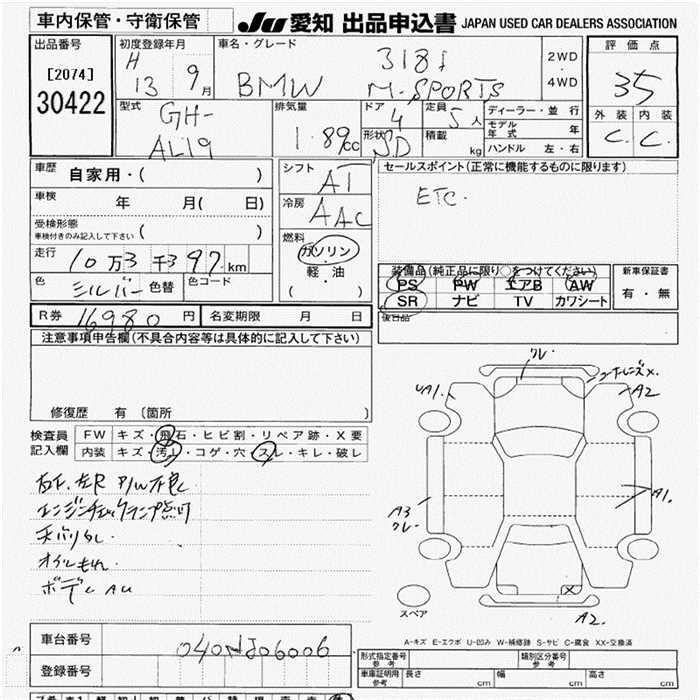 車内保管・守衛保管
JU 愛知 出品申込書 JAPAN USED CAR DEALERS ASSOCIATION
出品番号
[2074]
30422
初度登録年月
H 13 年 9 月
車名・グレード
BMW 318i M-SPORTS
2WD
・
4WD
評価点
3.5
外装 内装
C C
型式
GH-
AL19
排気量
1.89cc
ドア
4
形状
SD
定員
5人
積載
kg
ディーラー・並行
モデル年式 年
ハンドル 左・右
車歴 自家用・( )
車検 年 月( 日)
受検形態
車検付きのみ記入して下さい ( )
走行 10万3千397km
色 シルバー 色替
色コード
シフト
AT
冷房
AAC
燃料
ガソリン
軽・油
( )
セールスポイント(正常に機能するものに限ります)
ETC.
装備品(純正品に限り○をつけてください)
PS PW エアB AW
SR ナビ TV カワシート
新車保証書
有・無
後日品
R券 16980円
名変期限 月 日
注意事項申告欄(不具合内容等は具体的に記入して下さい)
修復歴 有 〔箇所 〕
検査員
記入欄
FW キズ・飛石・ヒビ割・リペア跡・X要
内装 キズ・汚れ・コゲ・穴・スレ・キレ・破レ
右F.左R P/W不良
エンジンチェックランプ点灯
天バリタレ
オイルもれ
ボデーAU
クレ
UA1.
コーナーレンズX.
A2
A3
クレ
A1.
X
A2.
スペア
A-キズ E-エクボ U-凹み W-補修跡 S-サビ C-腐食 XX-交換済
車台番号 040NJ06006
登録番号
形式指定番号
参考
類別区分番号
参考
車庫証明用
参考
長さ cm
幅 cm
高さ cm